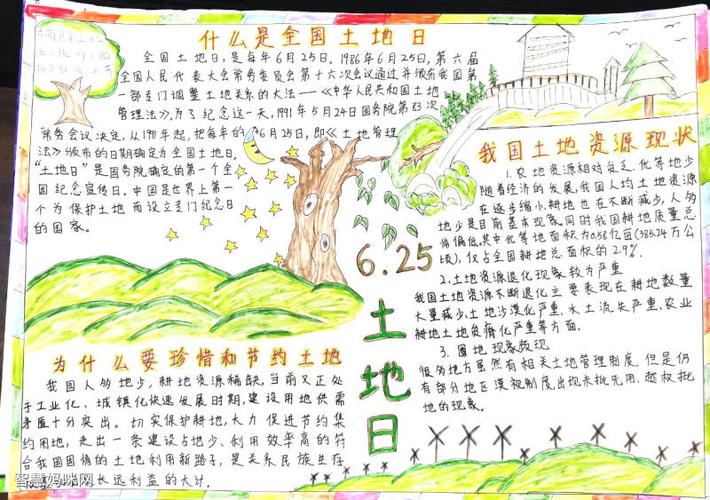 什么是全国土地日
全国土地日,是每年6月25日。1986年6月25日,第六届
全国人民代表大会常务委员会第十六次会议通过并颁布我国第
一部专门调整土地关系的大法——《中华人民共和国土地
管理法》,为了纪念这一天,1991年5月24日国务院第83次
常务会议决定,从1991年起,把每年的6月25日,即《土地管理
法》颁布的日期确定为全国土地日。
"土地日"是国务院确定的第一个全
国纪念宣传日。中国是世界上第一
个为保护土地而设立专门纪念日
的国家。
为什么要珍惜和节约土地
我国人多地少,耕地资源稀缺,当前又正处
于工业化、城镇化快速发展时期,建设用地供需
矛盾十分突出。切实保护耕地,大力促进节约集
约用地,走出一条建设占地少、利用效率高的符
合我国国情的土地利用新路子,是关系民族生存
长远利益的大计。
6.25
土地日
我国土地资源现状
1.农地资源相对贫乏、优等地少
随着经济的发展,我国人均土地资源
在逐步缩小,耕地也在不断减少,人多
地少是目前基本现象。同时我国耕地质量总
体偏低。其中优等地面积为0.58亿亩(385.24万公
顷),仅占全国耕地总面积的2.9%。
2.土地资源退化现象较为严重
我国土地资源不断退化主要表现在耕地数量
大量减少、土地沙漠化严重、水土流失严重、农业
耕地土地负荷化严重等方面。
3.圈地现象频现
很多地方虽然有相关土地管理制度,但是仍
有部分地区漠视制度出现未批先用、越权批
地的现象。
智慧妈咪网